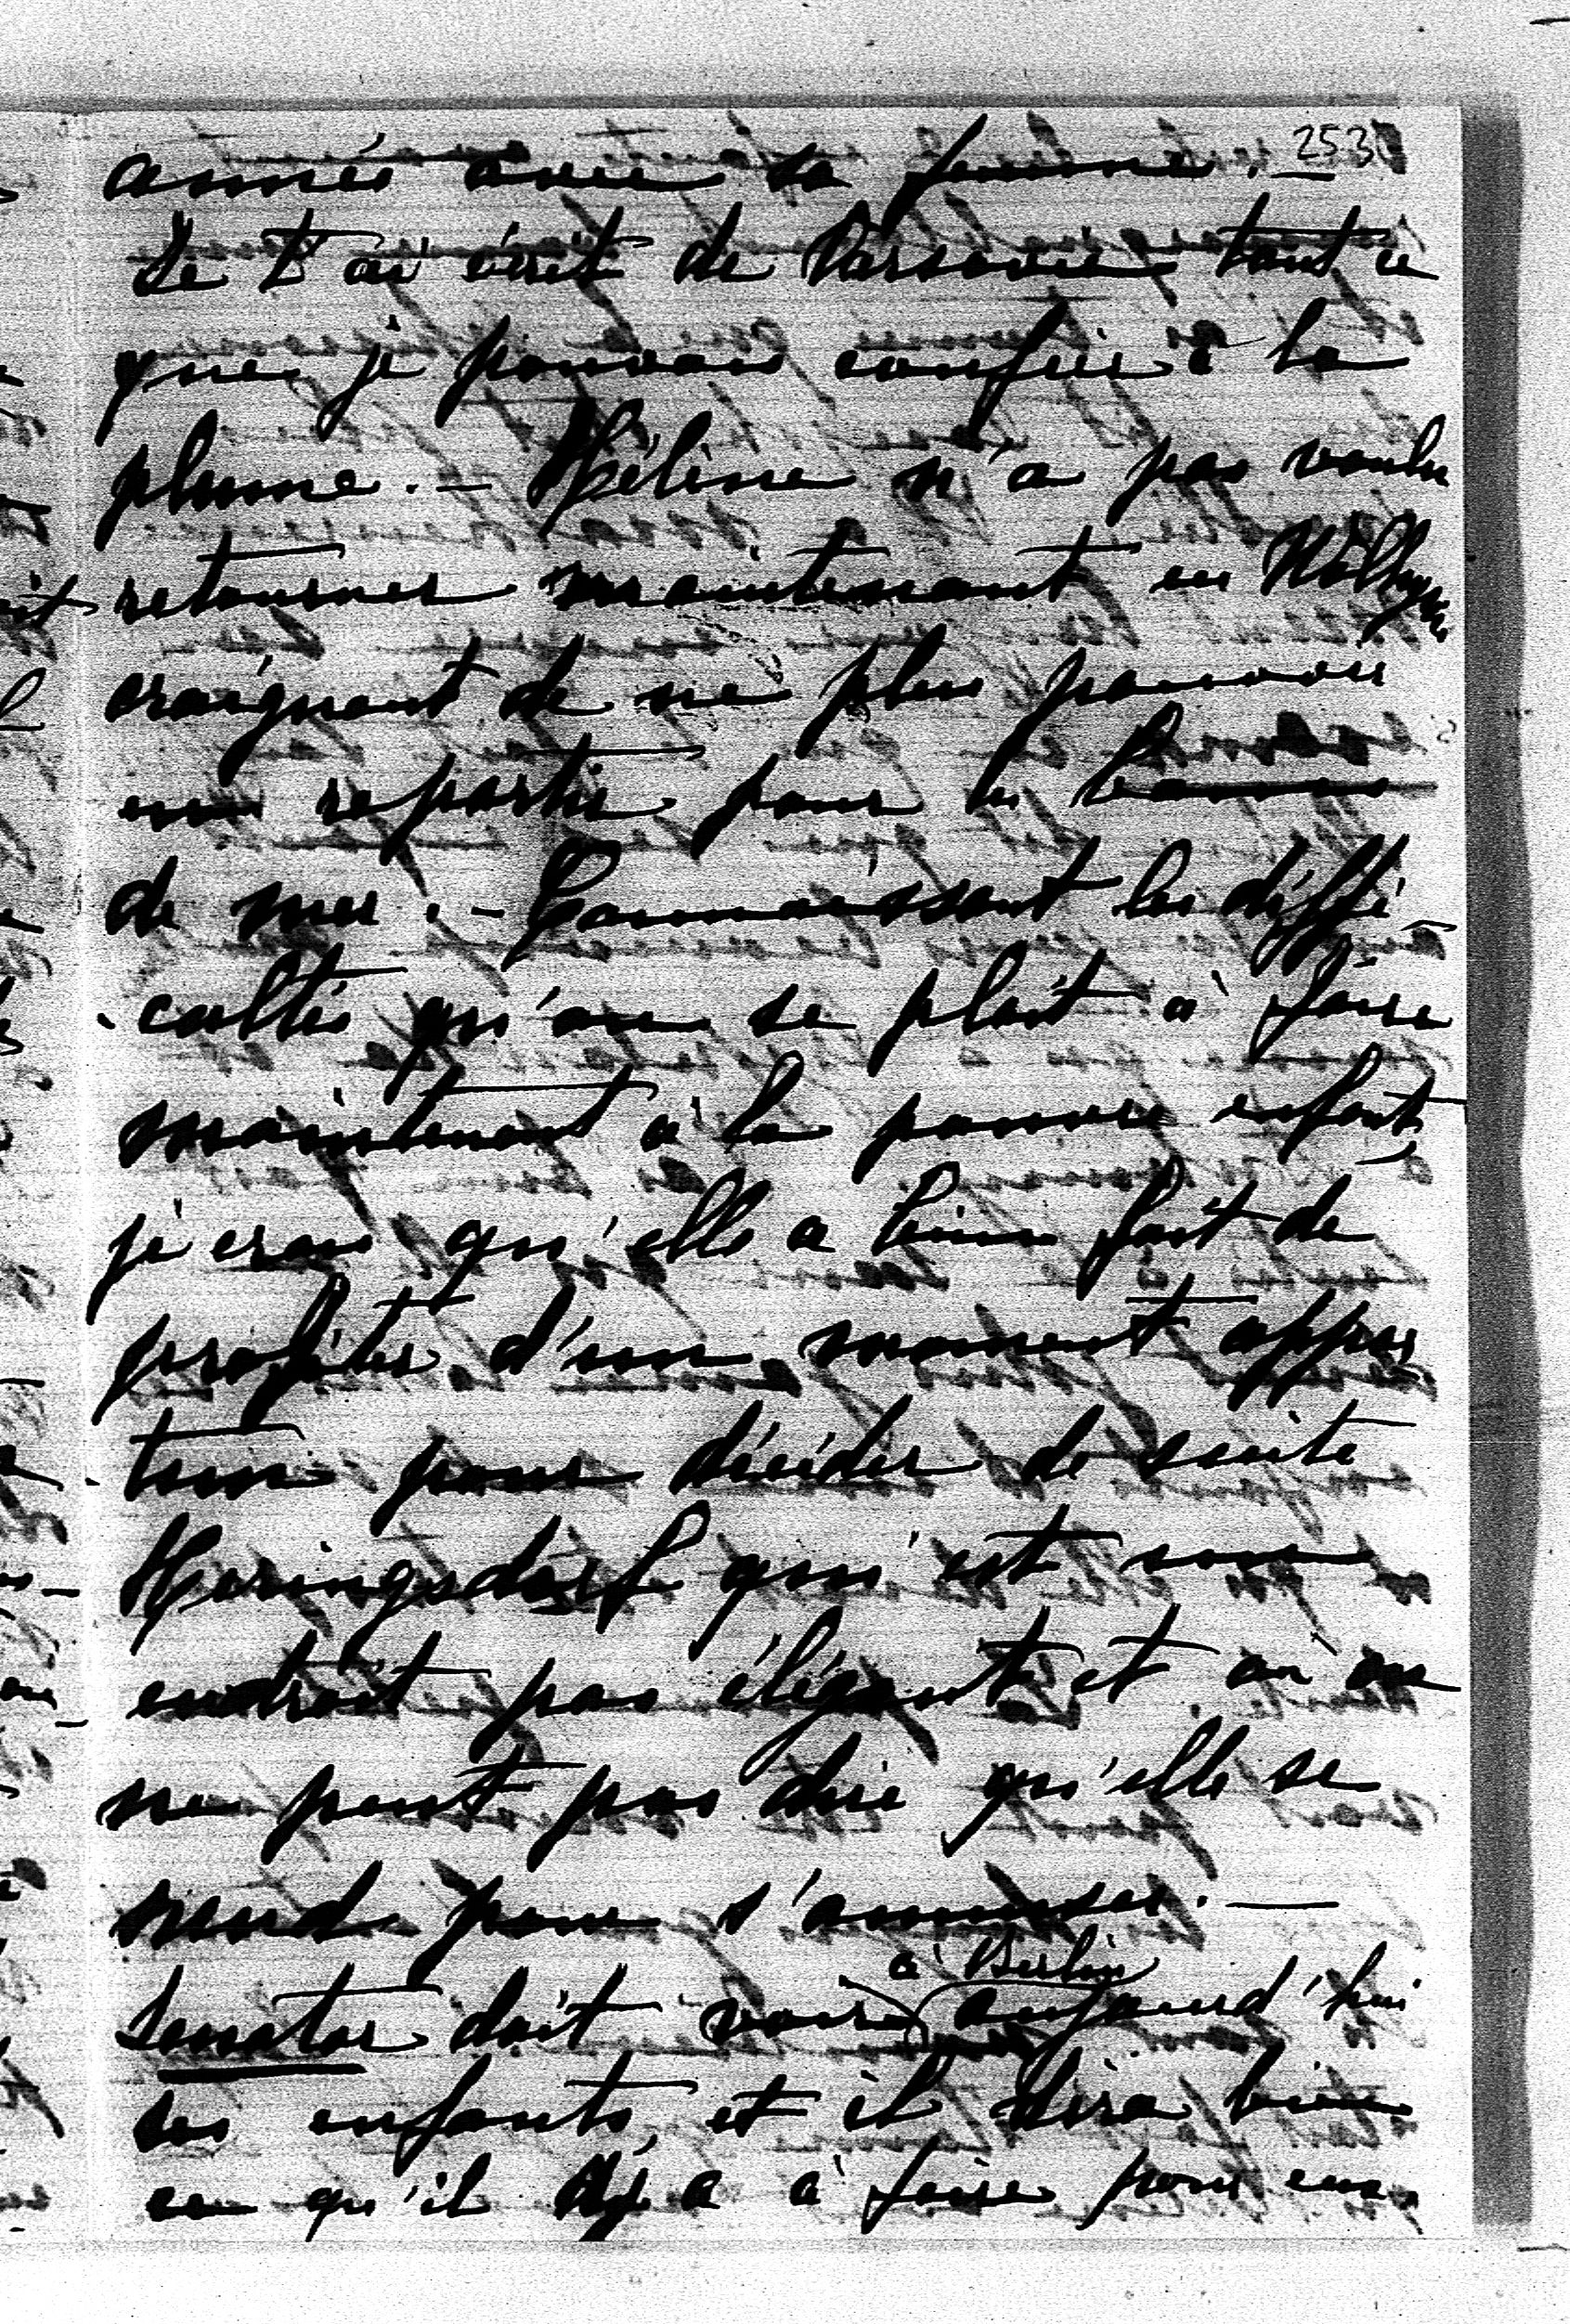 253
année avec sa femme. —
Je t'ai écrit de Varsovie tout ce
que je pouvais confier à la
plume. — Hélène n'a pas voulu
retourner maintenant en Wolhynie
craignant de ne plus pouvoir
en repartir pour les bains
de mer. — Connaissant les diffi-
cultés qu'on se plait à faire
maintenant à la pauvre enfant,
je crois qu'elle a bien fait de
profiter d'un moment oppor
tun pour décider de suite
Heringsdorf qui est un
endroit pas élégant et où on
ne peut pas dire qu'elle se
rend pour s'amuser. —
à Berlin
Senator doit voir aujourd'hui
ses enfants, et il dira bien
ce qu'il y a à faire pour eux.